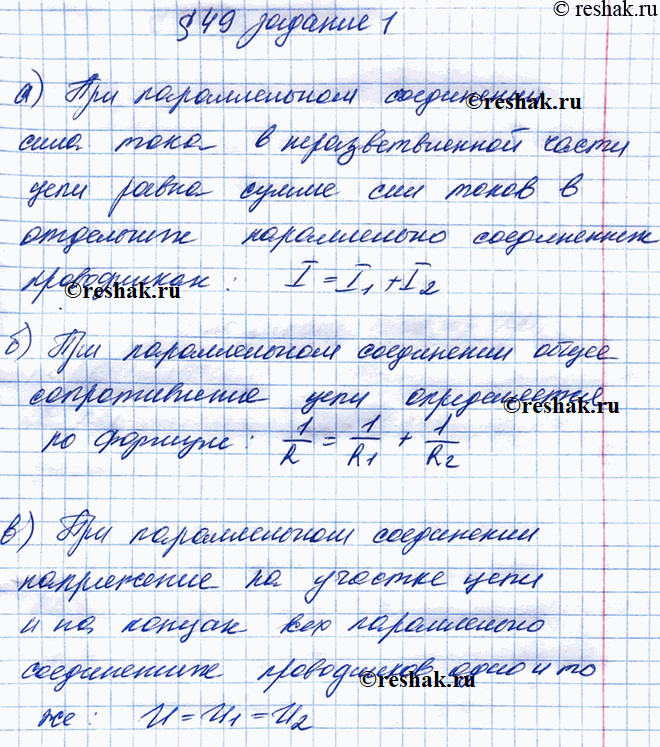 ©reshak.ru
§49 задание 1
а) При параллельном соединении
©reshak.ru
сила тока в неразветвленной части
цепи равна сумме сил токов в
отдельных параллельно соединенных
проводниках: I = I₁ + I₂
©reshak.ru
б) При параллельном соединении общее
сопротивление цепи определяется
©reshak.ru
по формуле: 1/R = 1/R₁ + 1/R₂
в) При параллельном соединении
напряжение на участке цепи
и на концах всех параллельно
соединенных проводников одно и то
©reshak.ru
же: U = U₁ = U₂